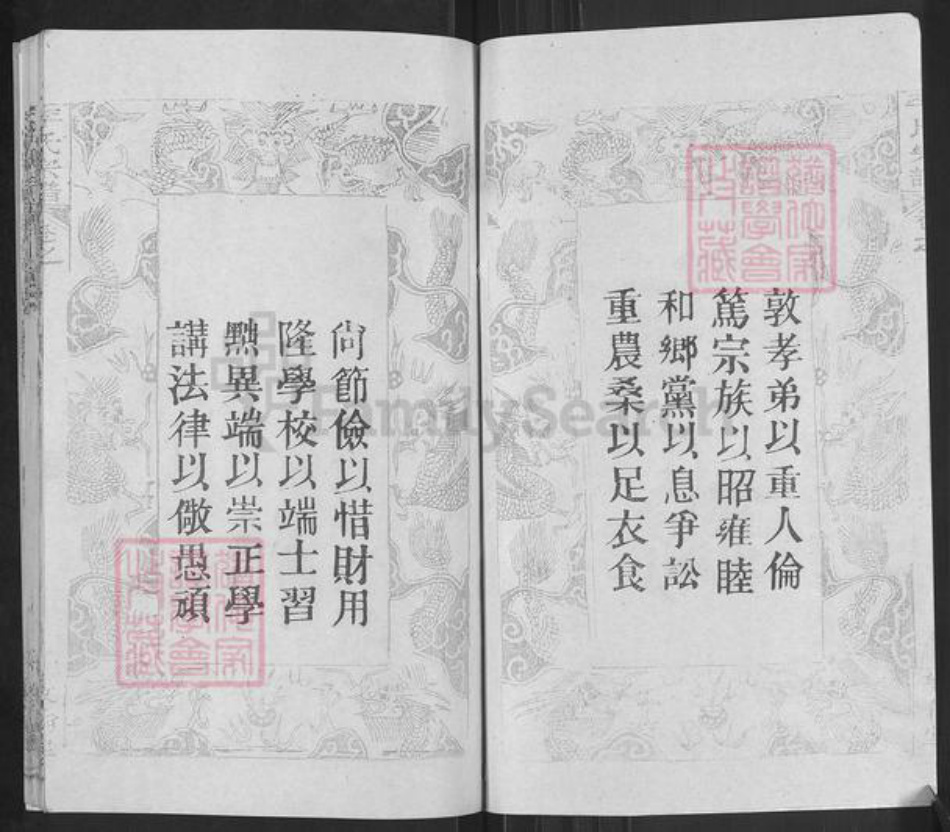 敦孝弟以重人倫
篤宗族以昭雍睦
和鄉黨以息爭訟
重農桑以足衣食
尙節儉以惜財用
隆學校以端士習
黜異端以崇正學
講法律以儆愚頑
FamilySearch